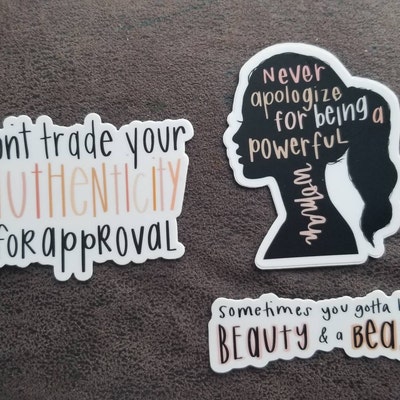 ont trade your
authenticity
for approval
Never
apologize
for being a
powerful
woman
sometimes you gotta b
BEAUTY & a BEA